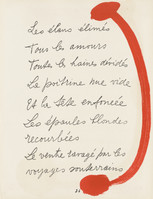 Les élans élimés
Tous les amours
Toutes les haines dévidés
La poitrine nue vide
Et la tête enfoncée
Les épaules blondes
recourbées
Le ventre ravagé par les
voyages souterrains